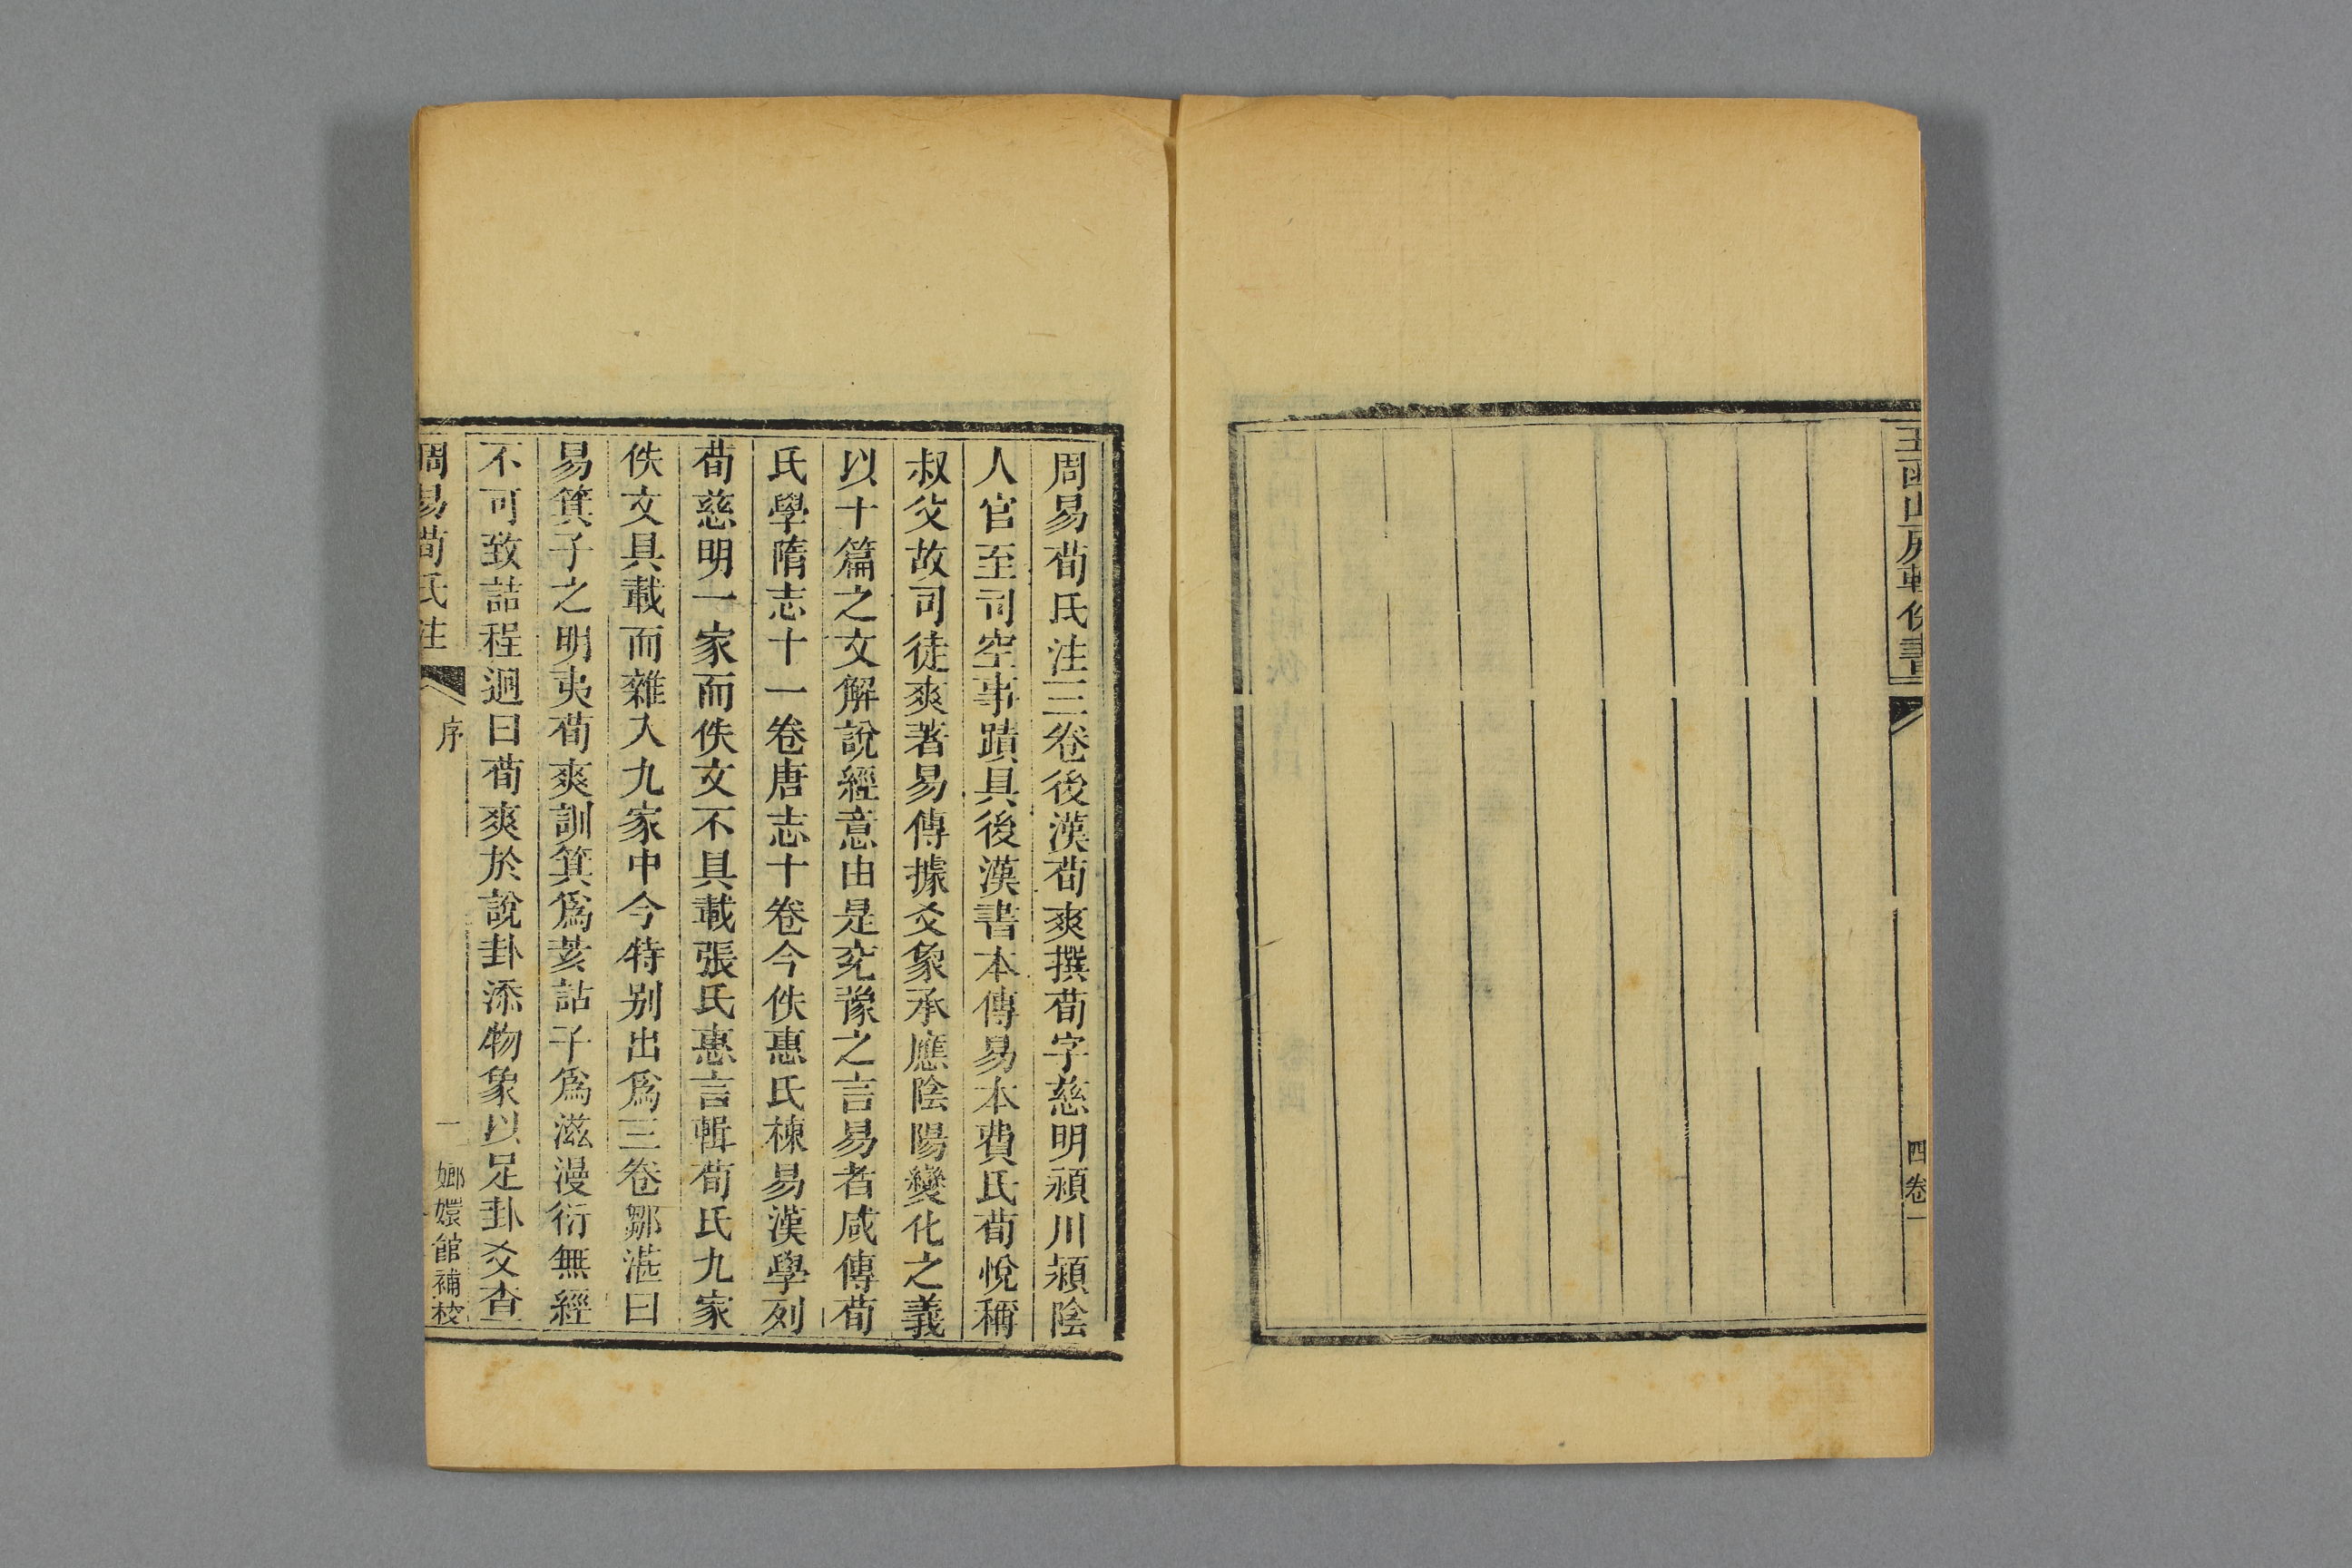 玉函山房輯佚書
四卷一
周易荀氏注三卷後漢荀爽撰荀字慈明潁川潁陰
人官至司空事蹟具後漢書本傳易本費氏荀悅稱
叔父故司徒爽著易傳據爻象承應陰陽變化之義
以十篇之文解說經意由是兖豫之言易者咸傳荀
氏學隋志十一卷唐志十卷今佚惠氏棟易漢學列
荀慈明一家而佚文不具載張氏惠言輯荀氏九家
佚文具載而雜入九家中今特别出爲三卷鄒湛曰
易箕子之明夷荀爽訓箕爲荄詁子爲滋漫衍無經
不可致詰程迥曰荀爽於說卦添物象以足卦爻查
周易荀氏注
序
一
嫏嬛館補校